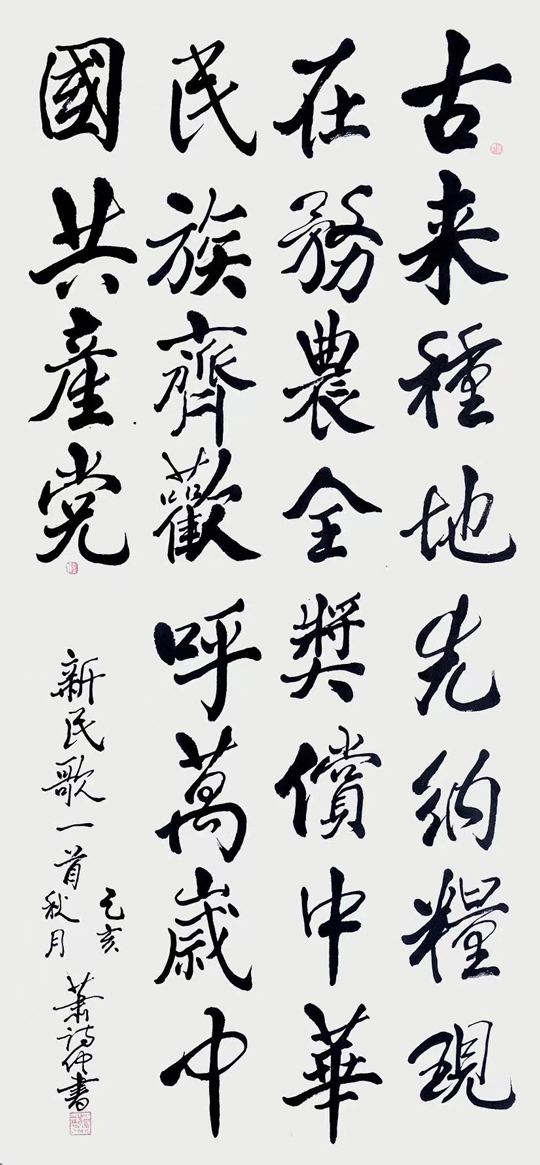 古来種地先納糧現
在務農全獎償中華
民族齊歡呼萬歲中
國共産党
新民歌一首
乙亥
秋月
蕭詩仲書